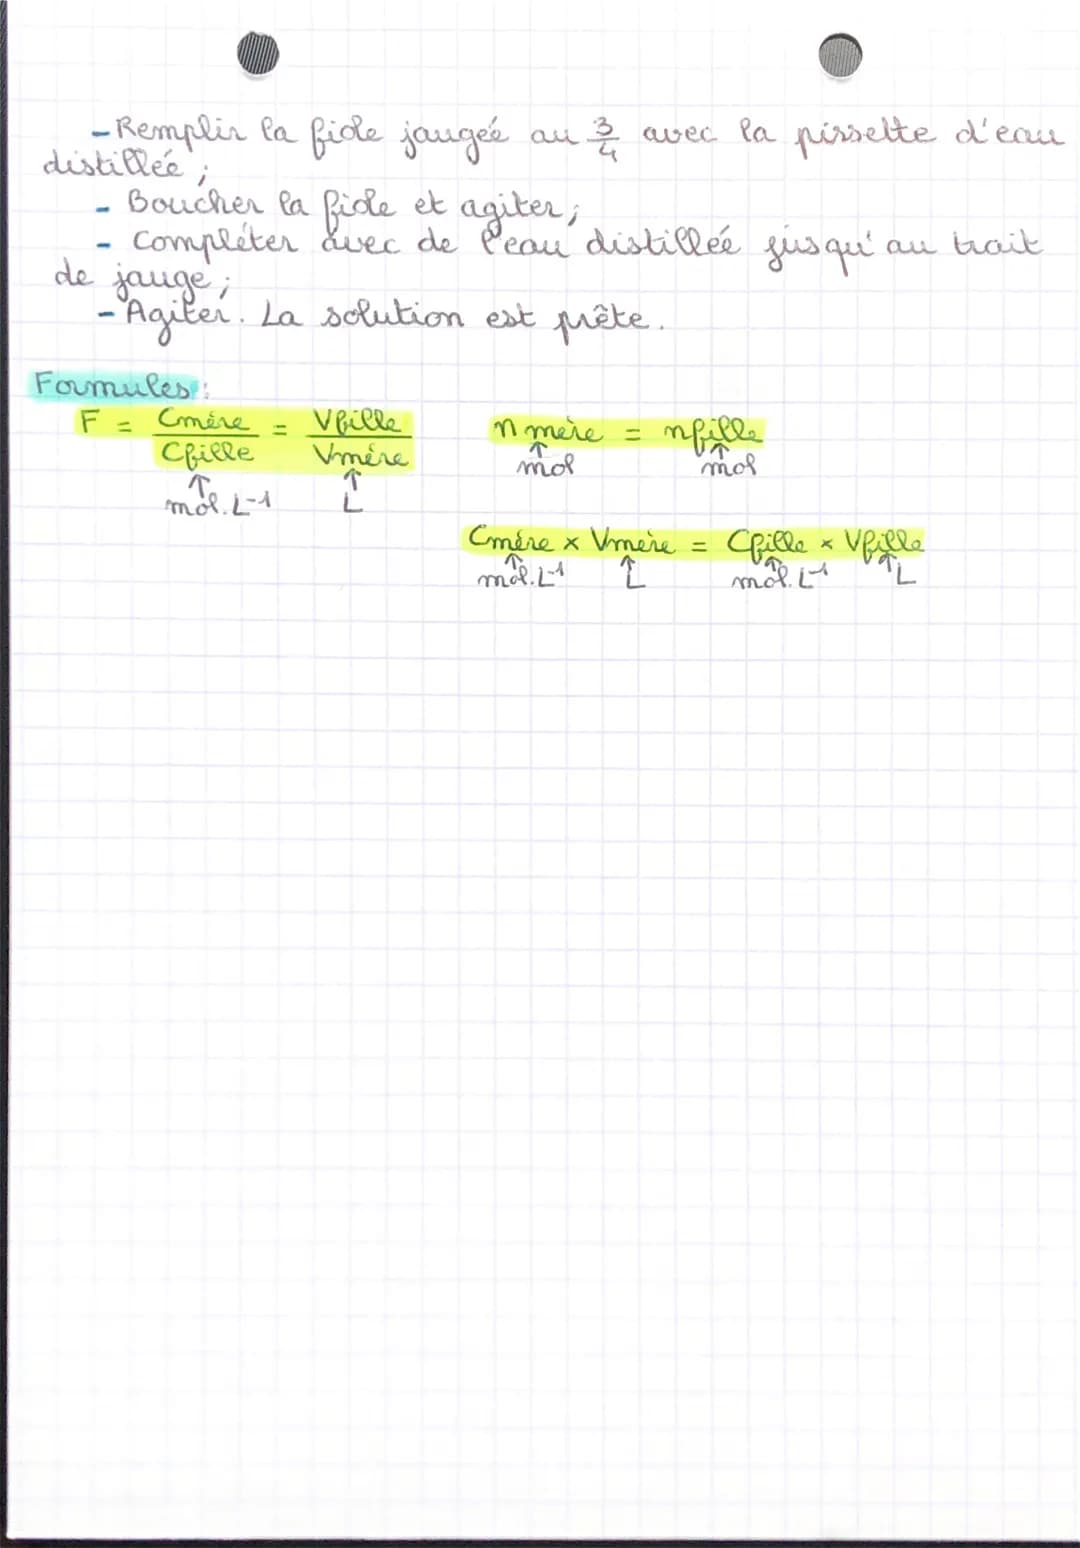 - Remplir la fiole jaugée au 3/4 avec la pissette d'eau
distillée ;
- Boucher la fiole et agiter ;
- Compléter avec de l'eau distillée jusqu'au trait
de jauge ;
- Agiter. La solution est prête.
Formules :
F = Cmère / Cfille = Vfille / Vmère
mol.L-1 L
n mère = nfille
mol mol
Cmère x Vmère = Cfille x Vfille
mol.L-1 L mol.L-1 L